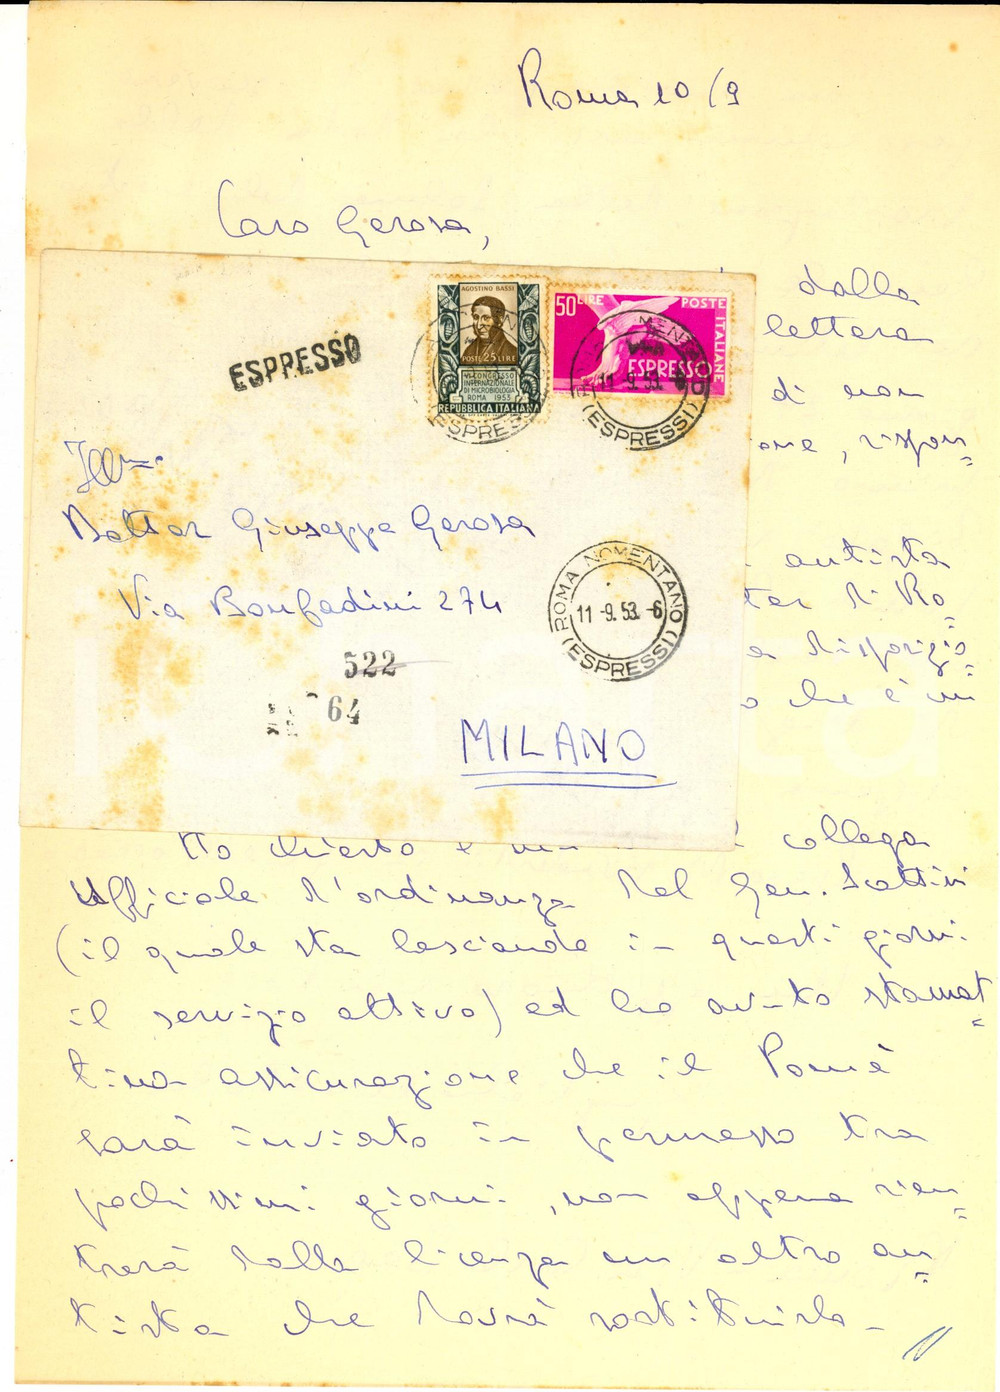 Roma 10/9
Caro Gerosa,
dalla
lettera
di non
one, rispon=
autista
ter di Ro=
a disposizio=
o che è in
ESPRESSO
AGOSTINO BASSI
POSTE 25 LIRE
VI CONGRESSO
INTERNAZIONALE
DI MICROBIOLOGIA
ROMA 1953
REPUBBLICA ITALIANA
(ESPRESSI)
50 LIRE POSTE ITALIANE
ESPRESSO
11 -9. 53. -6
(ESPRESSI)
Ill.mo
Dottor Giuseppe Gerosa
Via Bonfadini 274
ROMA NOMENTANO
11 -9. 53. -6
(ESPRESSI)
522
64
MILANO
Ho chiesto e collega
Ufficiale d'ordinanza del Gen. Scattini
(il quale sta lasciando in questi giorni
il servizio attivo) ed ho avuto stamat=
tina assicurazione che il Pomè
sarà inviato in permesso tra
pochissimi giorni, non appena rien=
trerà dalla licenza un altro au=
tista che dovrà sostituirlo -